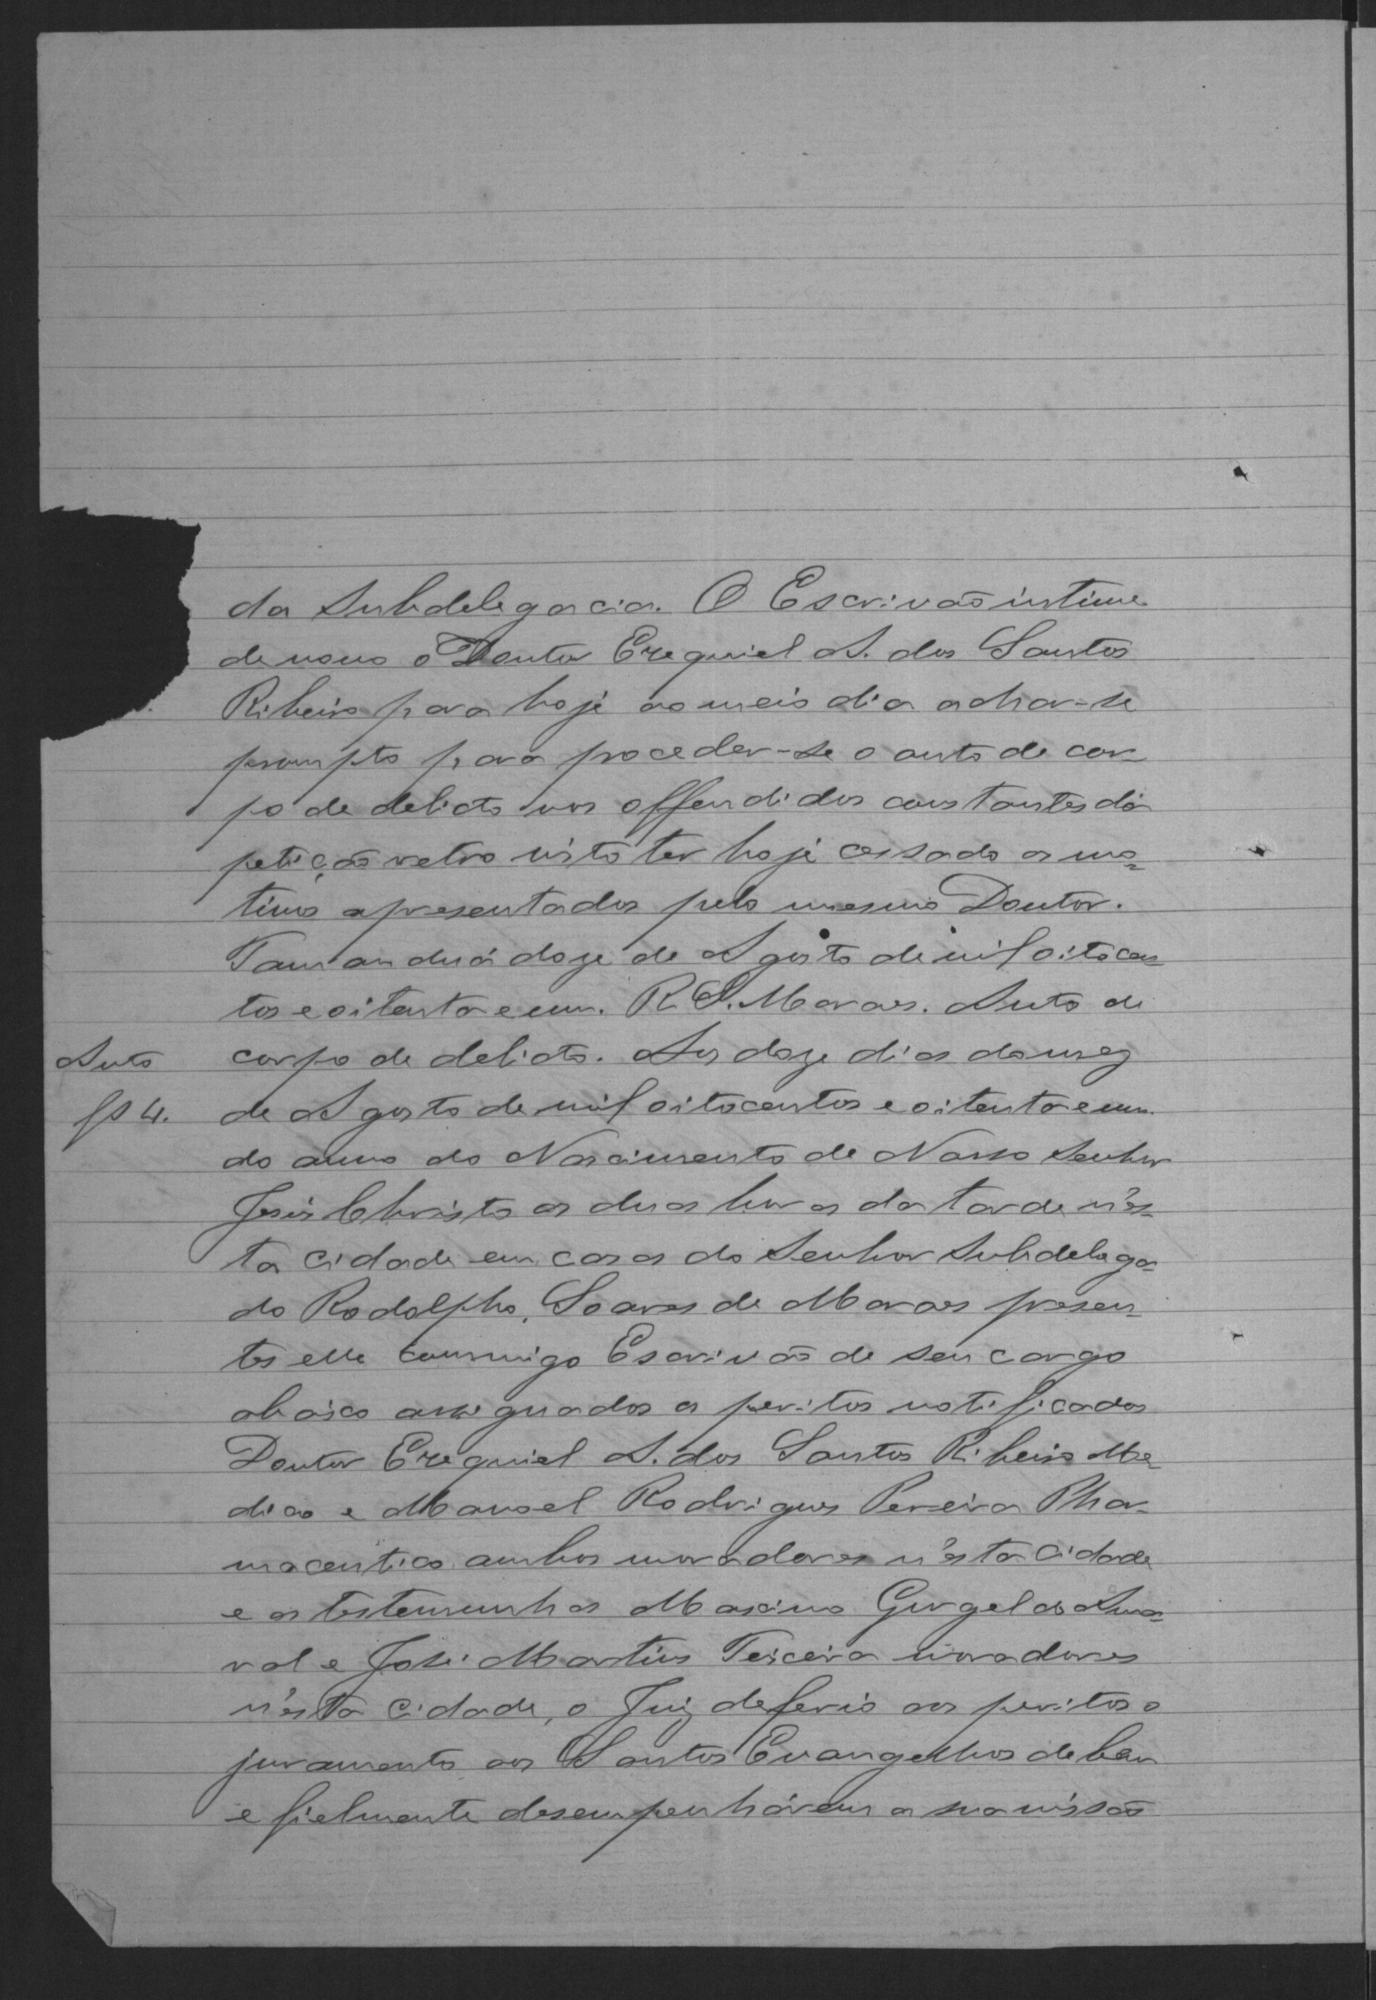 da Subdelegacia. O Escrivão intime
de novo o Doutor Ezequiel A. dos Santos
Ribeiro para hoje ao meio dia achar-se
prompto para proceder-se o auto de cor-
po de delicto nos offendidos constantes da
petição retro visto ter hoje cessado os mo-
tivos apresentados pelo mesmo Doutor.
Tamanduá doze de Agosto de mil oitocen-
tos e oitenta e um. R. S. Moraes. Auto de
Auto
corpo de delicto. Aos doze dias do mez
fs 4.
de Agosto de mil oitocentos e oitenta e um
do anno do Nascimento de Nosso Senhor
Jesus Christo as duas horas da tarde n'es-
ta cidade em casa do Senhor Subdelega-
do Rodolpho, Soares de Moraes presen-
tes elle commigo Escrivão de seu cargo
abaixo assignados os peritos notificados
Doutor Ezequiel A. dos Santos Ribeiro Me-
dico e Manoel Rodrigues Pereira Phar-
maceutico ambos moradores n'esta Cidade
e as testemunhas Maximo Gurgel do Ama-
ral e José Martins Teixeira moradores
n'esta Cidade, o Juiz deferio aos peritos o
juramento aos Santos Evangelhos de bem
e fielmente desempenhárem a sua missão